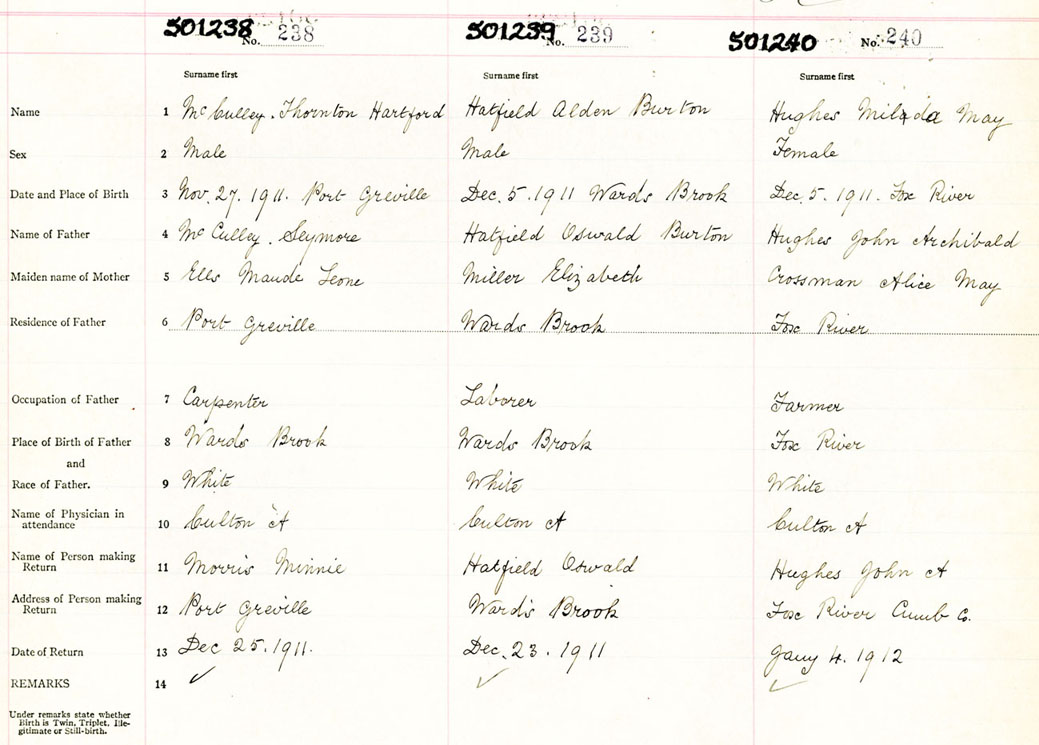 501238 No. 238 501239 No. 239 501240 No. 240
Surname first Surname first Surname first
Name 1 McCulley. Thornton Hartford Hatfield Alden Burton Hughes Milada May
Sex 2 Male Male Female
Date and Place of Birth 3 Nov. 27. 1911. Port Greville Dec. 5. 1911 Wards Brook Dec. 5. 1911. Fox River
Name of Father 4 McCulley. Seymore Hatfield Oswald Burton Hughes John Archibald
Maiden name of Mother 5 Ells Maude Leone Miller Elizabeth Crossman Alice May
Residence of Father 6 Port Greville Wards Brook Fox River
Occupation of Father 7 Carpenter Laborer Farmer
Place of Birth of Father 8 Wards Brook Wards Brook Fox River
and
Race of Father. 9 White White White
Name of Physician in
attendance 10 Culton A Culton A Culton A
Name of Person making
Return 11 Morris Minnie Hatfield Oswald Hughes John A
Address of Person making
Return 12 Port Greville Ward's Brook Fox River Cumb Co.
Date of Return 13 Dec 25. 1911. Dec. 23. 1911 Jany 4. 1912
REMARKS 14 ✓ ✓ ✓
Under remarks state whether
Birth is Twin, Triplet, Ille-
gitimate or Still-birth.